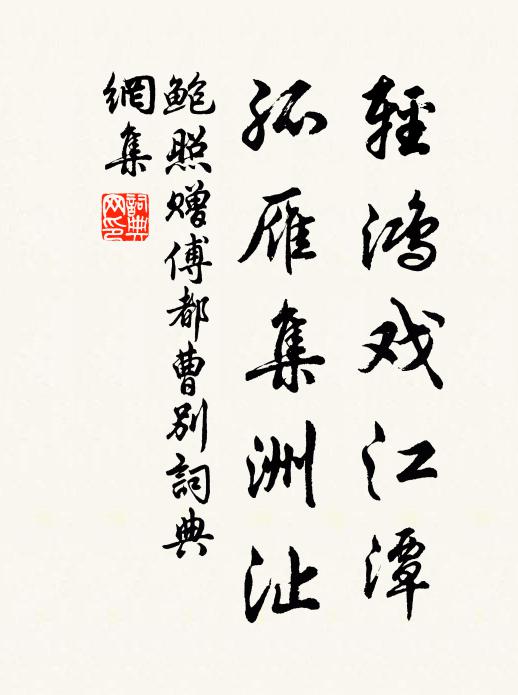 輕鸿戏江潭
孤雁集洲沚
鲍照赠傅都曹别詞典
網集
詞典网印